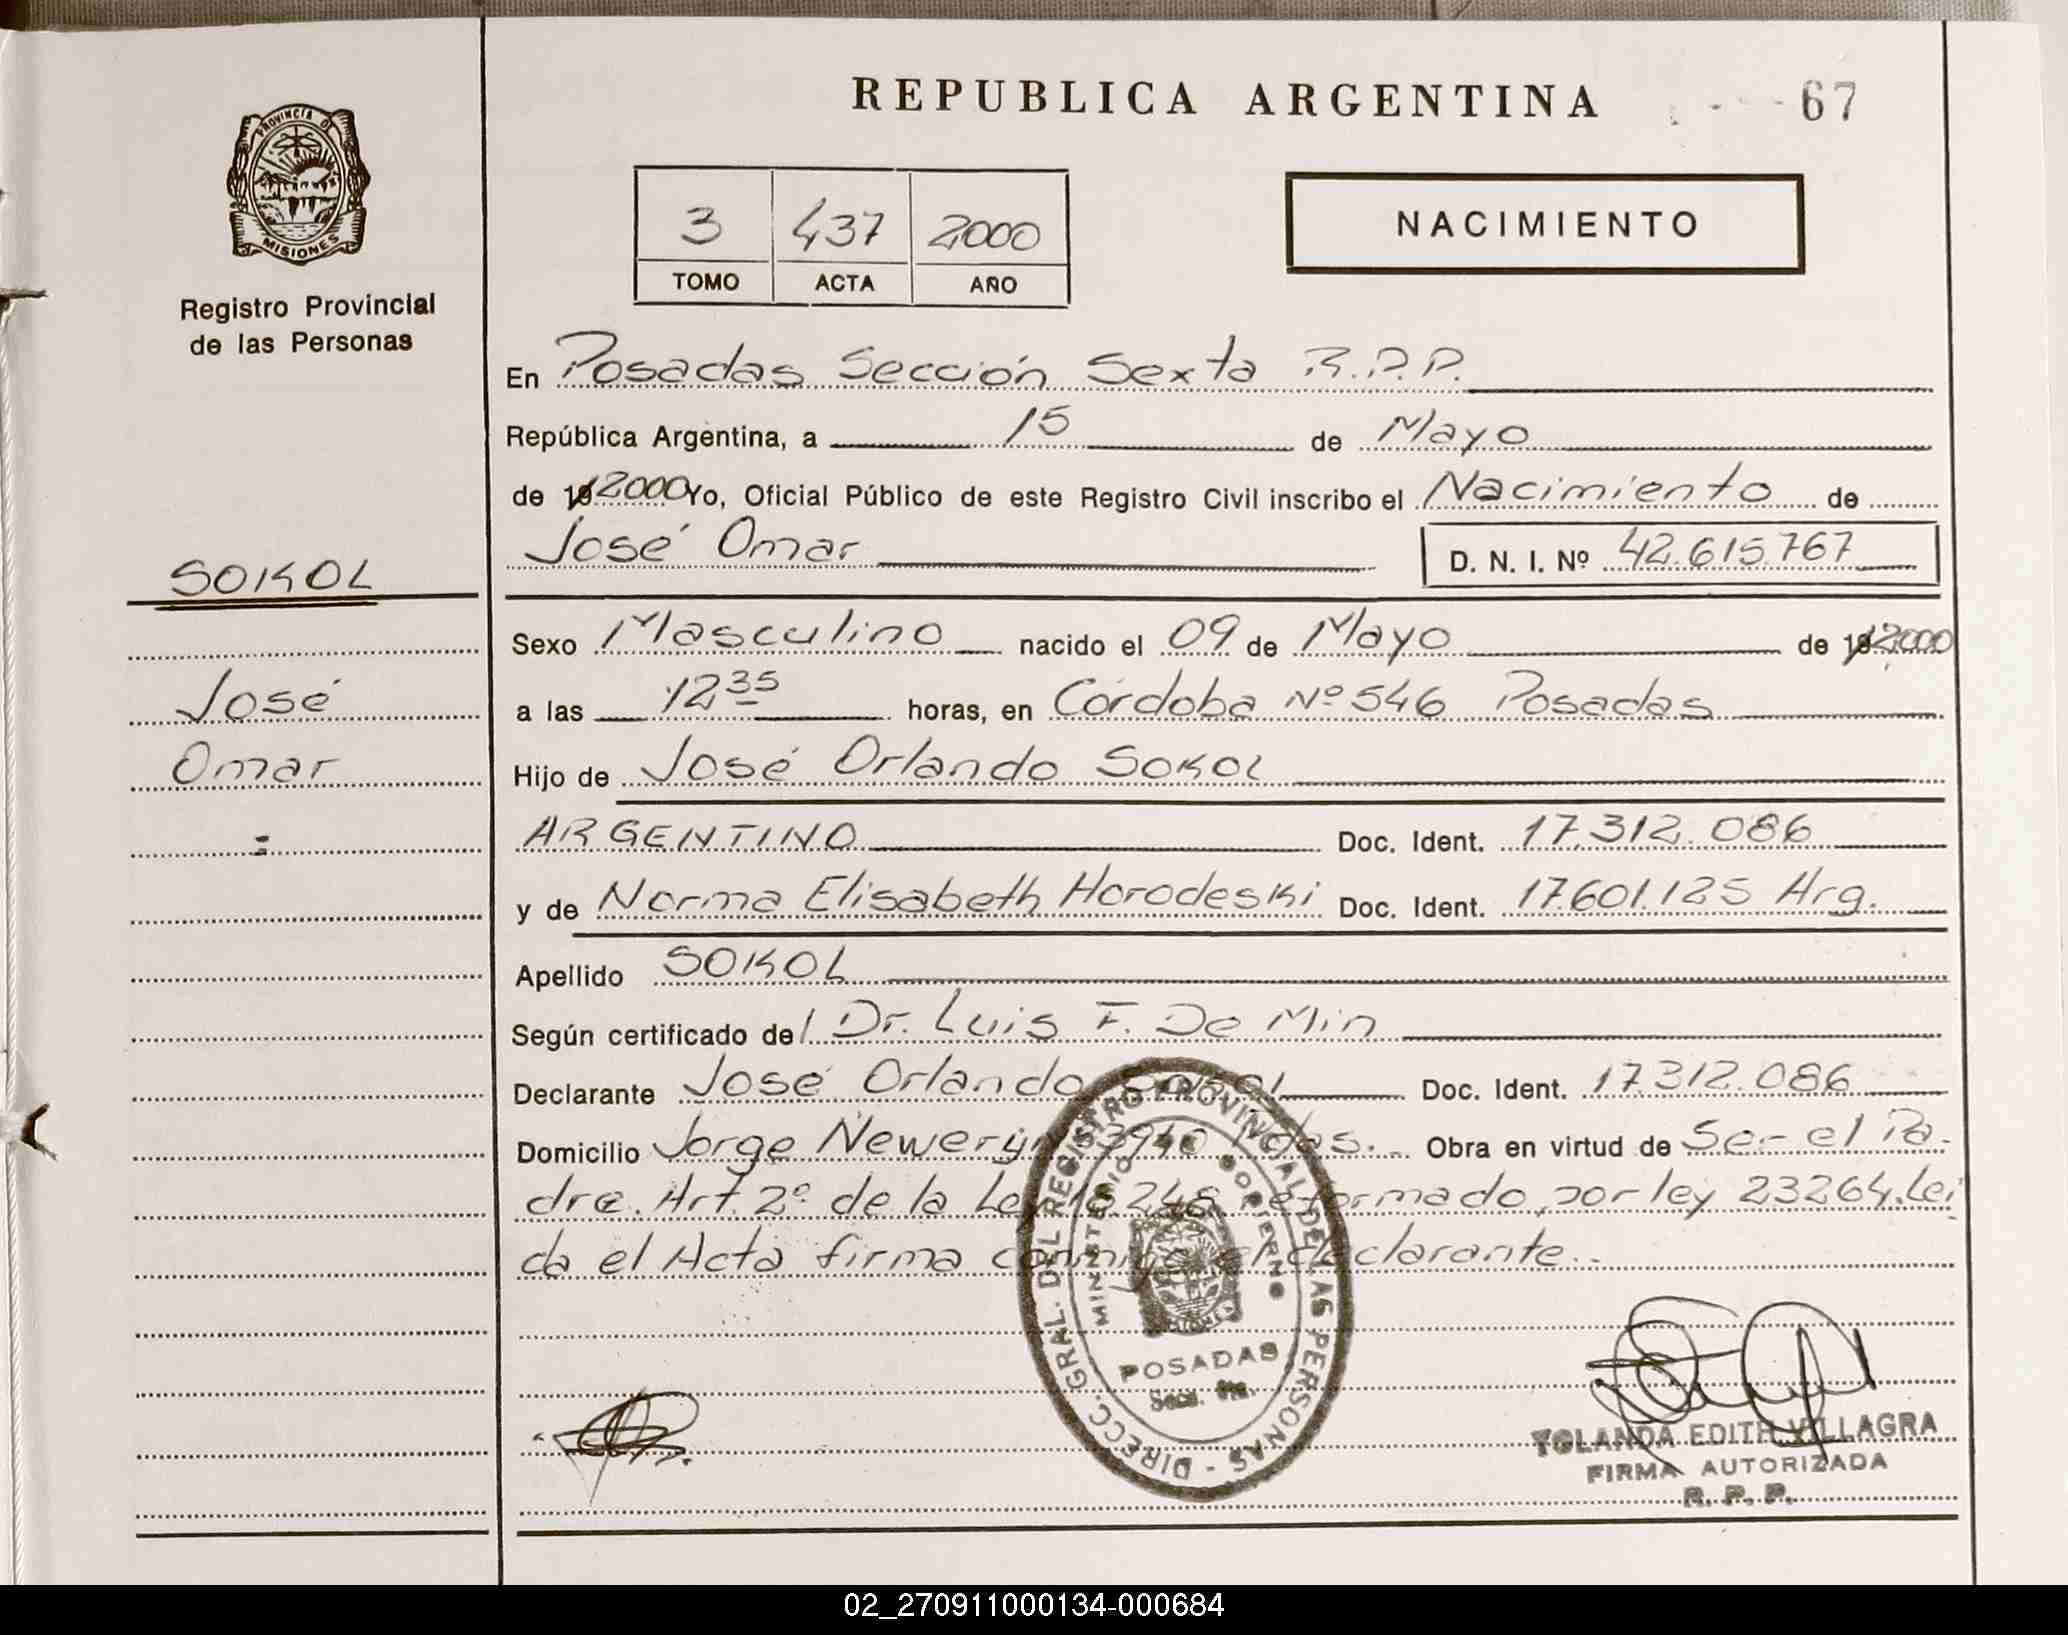 REPUBLICA ARGENTINA
67
PROVINCIA DE
MISIONES
Registro Provincial
de las Personas
3 437 2000
TOMO ACTA AÑO
NACIMIENTO
En Posadas Sección Sexta R.P.P.
República Argentina, a 15 de Mayo
de 19 2000 Yo, Oficial Público de este Registro Civil inscribo el Nacimiento de
José Omar D. N. I. Nº 42.615.767
SOKOL
José
Omar
Sexo Masculino nacido el 09 de Mayo de 19 2000
a las 12 35 horas, en Córdoba Nº 546 Posadas
Hijo de José Orlando Sokol
ARGENTINO Doc. Ident. 17.312.086
y de Norma Elisabeth Horodeski Doc. Ident. 17.601.125 Arg.
Apellido SOKOL
Según certificado del Dr. Luis F. De Min
Declarante José Orlando Sokol Doc. Ident. 17.312.086
Domicilio Jorge Newery 3940 Pdas. Obra en virtud de Ser el Pa-
dre. Art. 2º de la Ley 18.248 reformado por ley 23264. Lei
da el Acta firma conmigo el declarante.
DIRECC. GRAL. DEL REGISTRO PROVINCIAL DE LAS PERSONAS
MINISTERIO GOBIERNO
POSADAS
YOLANDA EDITH VILLAGRA
FIRMA AUTORIZADA
R. P. P.
02_270911000134-000684